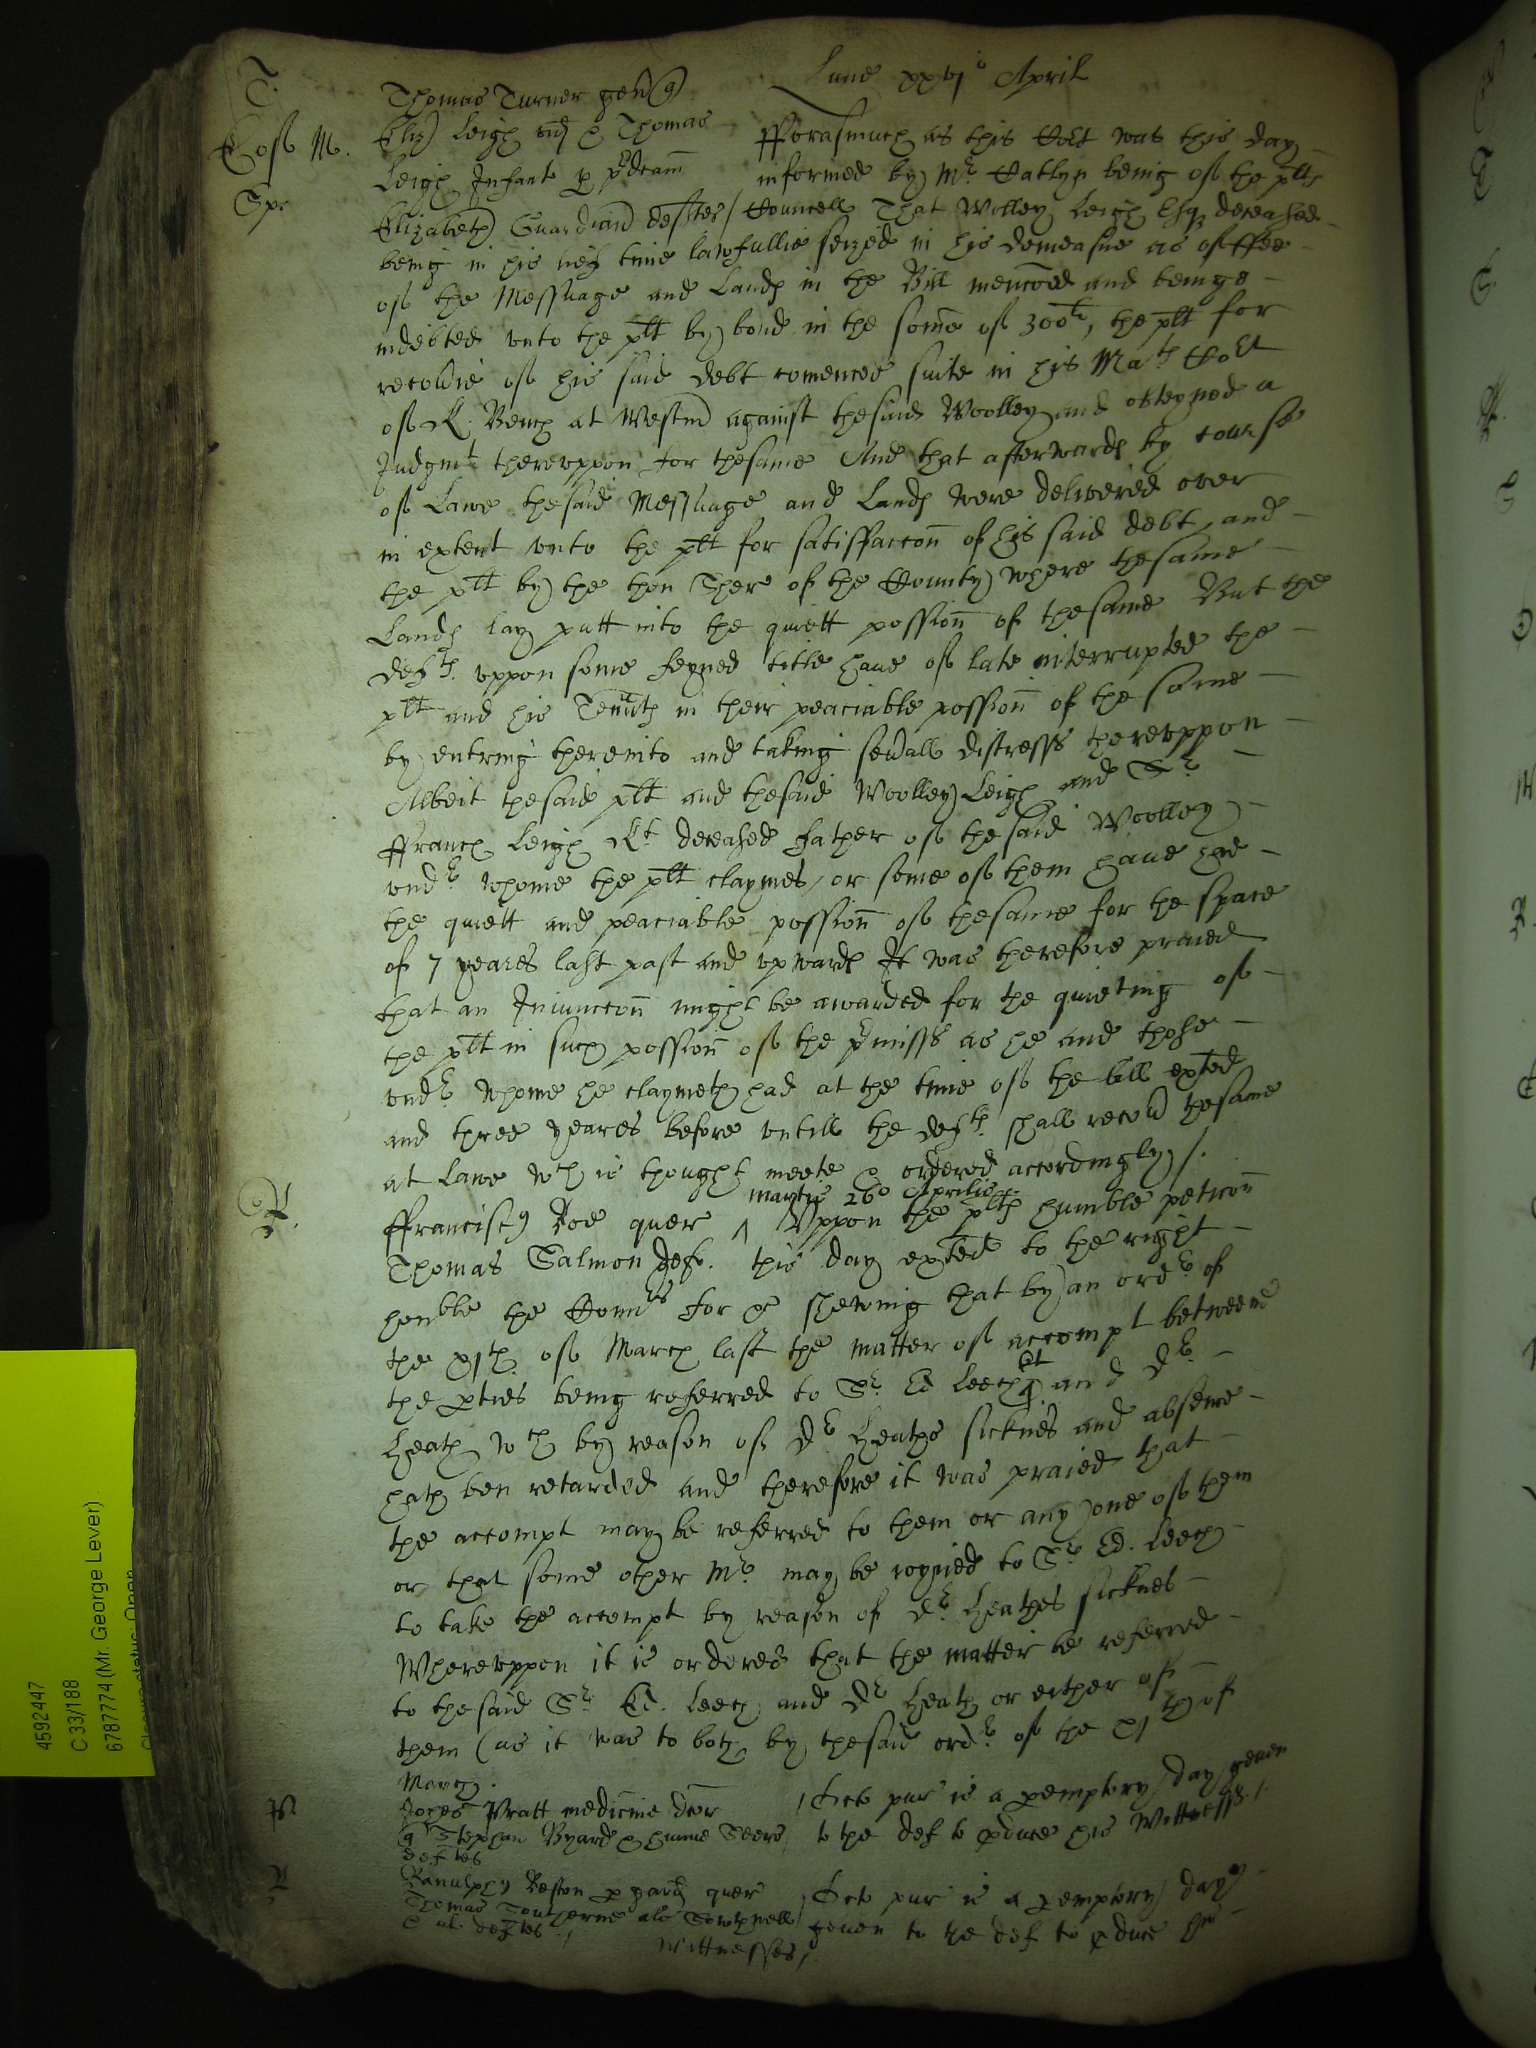 T.
Lune xxvjo April
Thomas Turner gen q
Cost M.
Eliz Leigh vid & Thomas
fforasmuch as this Cort was this day
Leigh Infant p predcam
informed by Mr Catlyn being of the plts
Sp:
Elizabeth Guardian deftes / Councell That Wolley Leigh Esq deceased
being in his lief time lawfullie seized in his demeasne as of ffee
of the Messuage and Lands in the Bill mencoed and beinge
indebted unto the plt by bond in the some of 300li, the plt for
recovie of his said debt comenced suite in his Mats Cort
of K. Bench at Westm against thesaid Woolley and obteyned a
Judgmt thereuppon for thesame And that afterwards by course
of Lawe thesaid Messuage and Lands were delivered over
in extent unto the plt for satisfaccon of his said debt, and
the plt by the then Sher of the County where thesame
Lands lay putt into the quiett possion of thesame But the
defts. uppon some feyned title have of late interrupted the
plt and his Tennts in their peaciable possion of the same
by entring thereinto and taking sevall distresss thereuppon
Albeit thesaid plt and thesaid Woolley Leigh and Sr
ffrancs Leigh Kt deceased father of the said Woolley
undr whome the plt claymes, or some of them have had
the quiett and peaciable possion of thesame for the space
of 7 yeares last past and upwards It was therefore praied
that an Iniunccon might be awarded for the quieting of
the plt in such possion of the pmisss as he and those
undr whome he claymeth had at the time of the bill exted
and three yeares before untill the defts. shall recov thesame
at Lawe wch is thought meete & ordered accordingly /.
R.
Martis 26o Aprilis
ffranciscq Roe quer ^ Uppon the plts humble peticon
Thomas Salmon deft. this day exted to the right
honble the Comrs for &c shewing that by an ordr of
the xjth of March last the matter of accompt betweene
the pties being referred to Sr Ed Leech kt and Dr
Heath wch by reason of Dr Heaths sicknes and absence
hath ben retarded and therefore it was praied that
the accompt may be referred to them or any one of them
or that some other Mr may be ioyned to Sr Ed. Leech
to take the accompt by reason of Dr Heathes sicknes
Whereuppon it is ordered that the matter be referred
to thesaid Sr Ed. Leech and Dr Heath or either of
them (as it was to both by thesaid ordr of the xjth of
March.
P
Johes Pratt medicine dcor / Octo pur is a pemptory day geven
q Stephan Byard & Seers / to the def to pduce his Wittnesss /.
deftes
R
Ranulphq Reston p gard quer / Octo pur is a pemptory day
Thomas Toutherne als Sowthnell / geven to the def to pduce his
& al deftes /
Wittnesses /.
4592447
C 33/188
6787774 (Mr. George Lever)